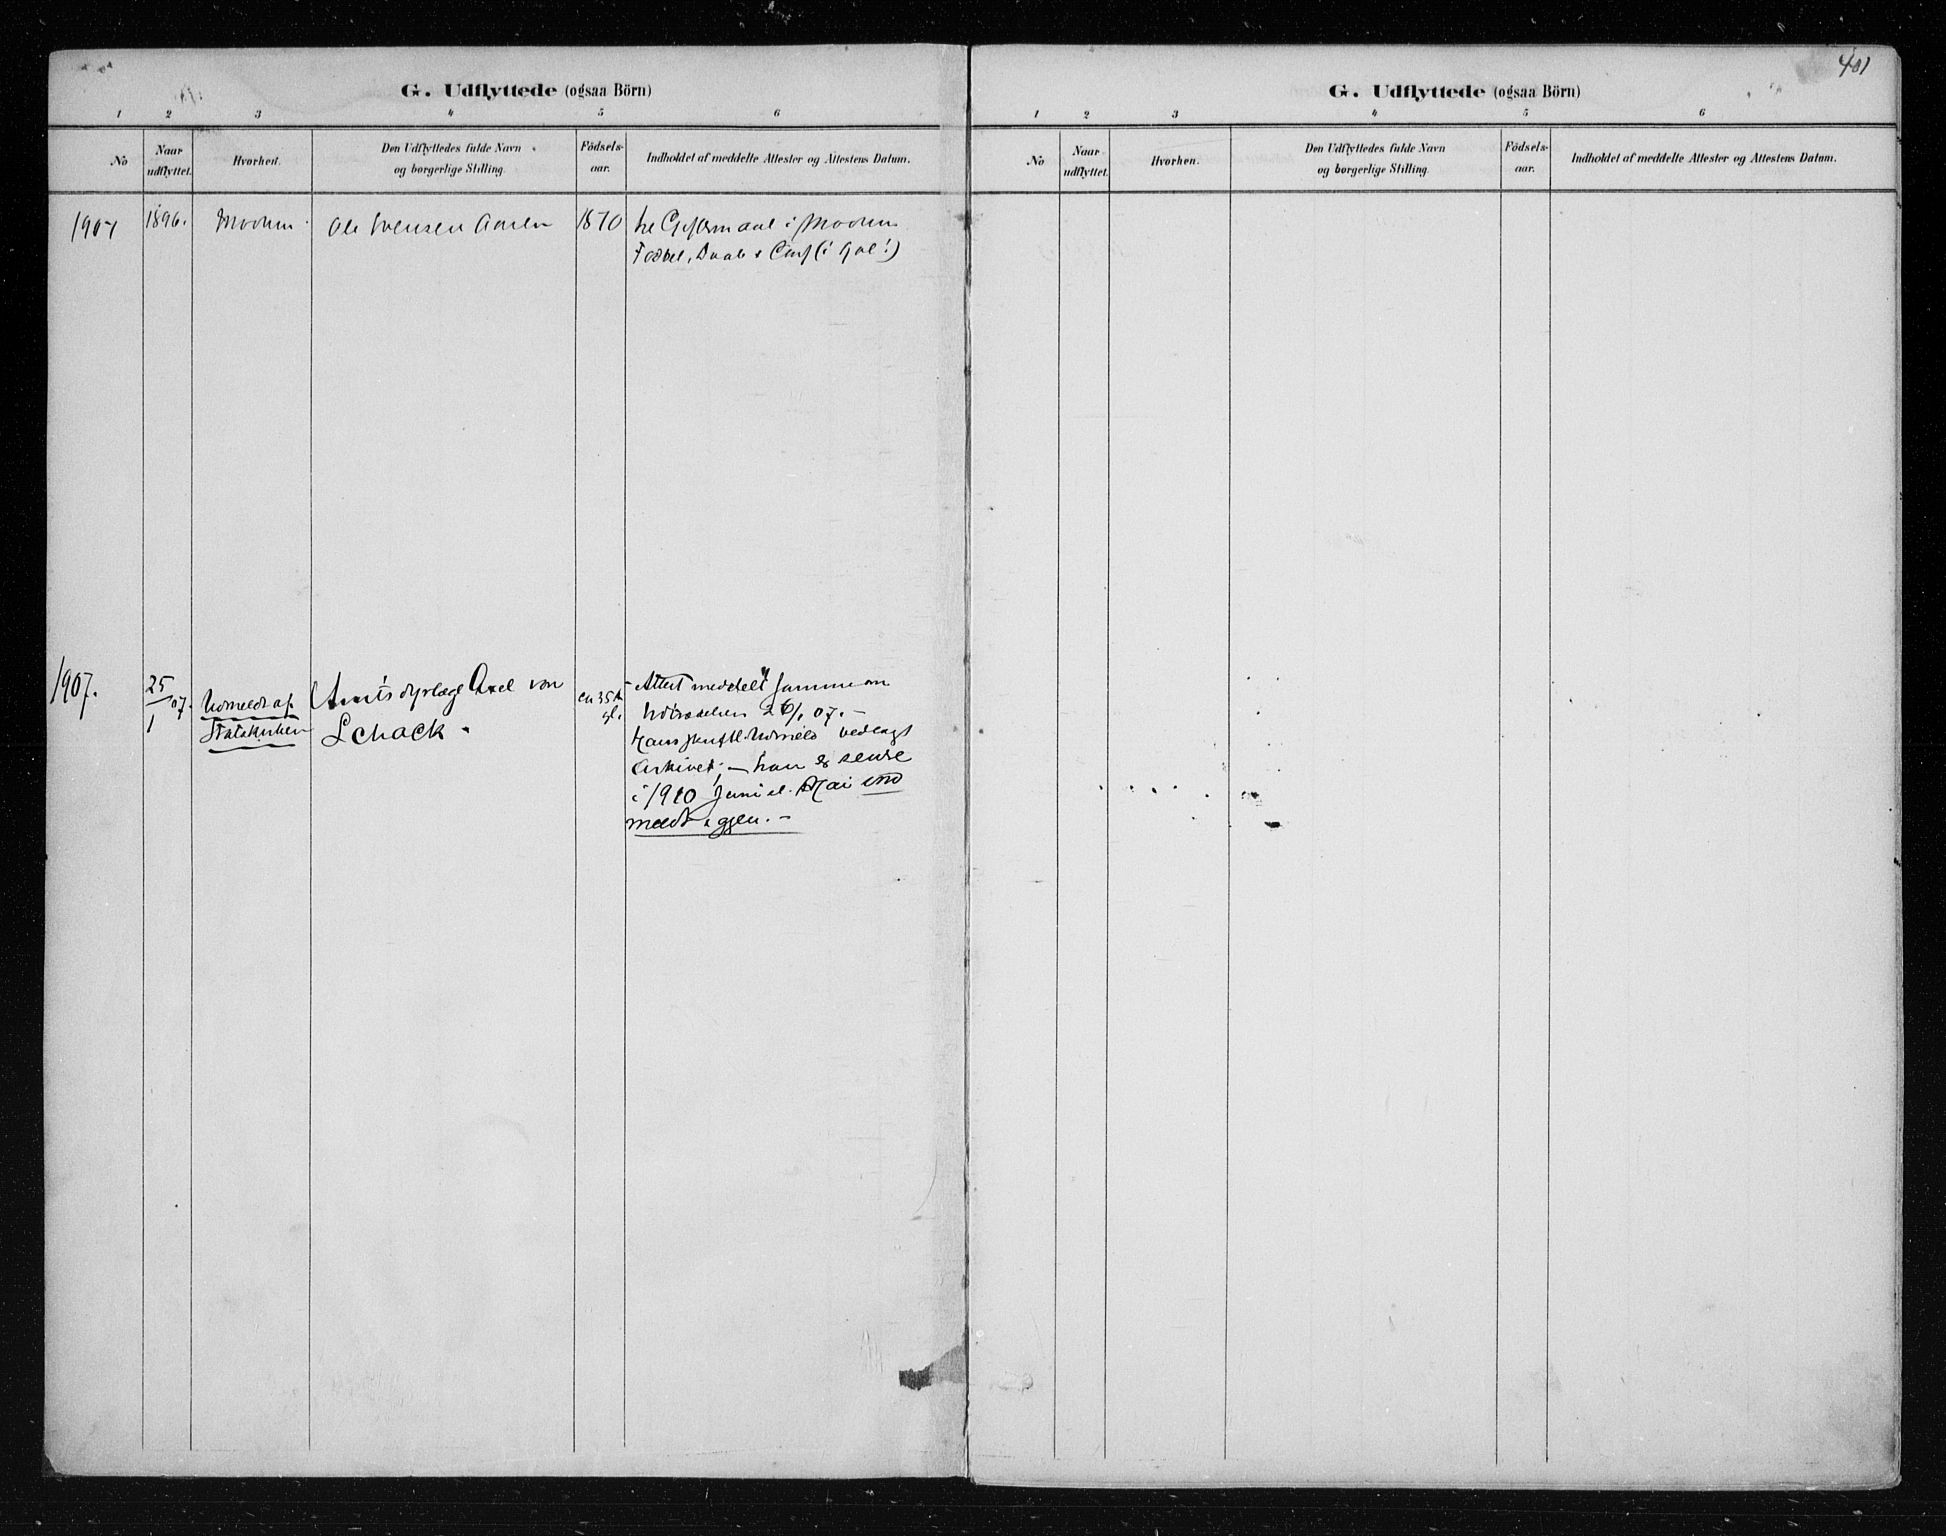 401
G. Udflyttede (ogsaa Börn)
1 2 3 4 5 6
No
Naar udflyttet.
Hvorhen.
Den Udflyttedes fulde Navn og borgerlige Stilling.
Födsels-aar.
Indholdet af meddelte Attester og Attestens Datum.
1907 1896. Modum. Ole Svensen 1870 til Giftermaal i Modum
Födsel, Daab & Conf (i Gol!)
1907. 25/1 07. Udmeldt af Statskirken Amtsdyrlæge Axel von Schack. ca 35 A. gl. Attest meddelt samme om
Udtrædelsen 26/1 07. –
Hans skriftl. Udmeld vedlagt
Arkivet; – han er senere
i 1910 Juni el. Mai ind
meldt igjen. –
G. Udflyttede (ogsaa Börn)
1 2 3 4 5 6
No
Naar udflyttet.
Hvorhen.
Den Udflyttedes fulde Navn og borgerlige Stilling.
Födsels-aar.
Indholdet af meddelte Attester og Attestens Datum.